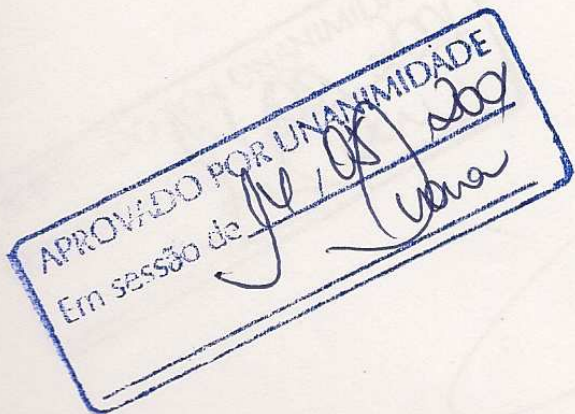 APROVADO POR UNANIMIDADE
Em sessão de 14, 08, 200